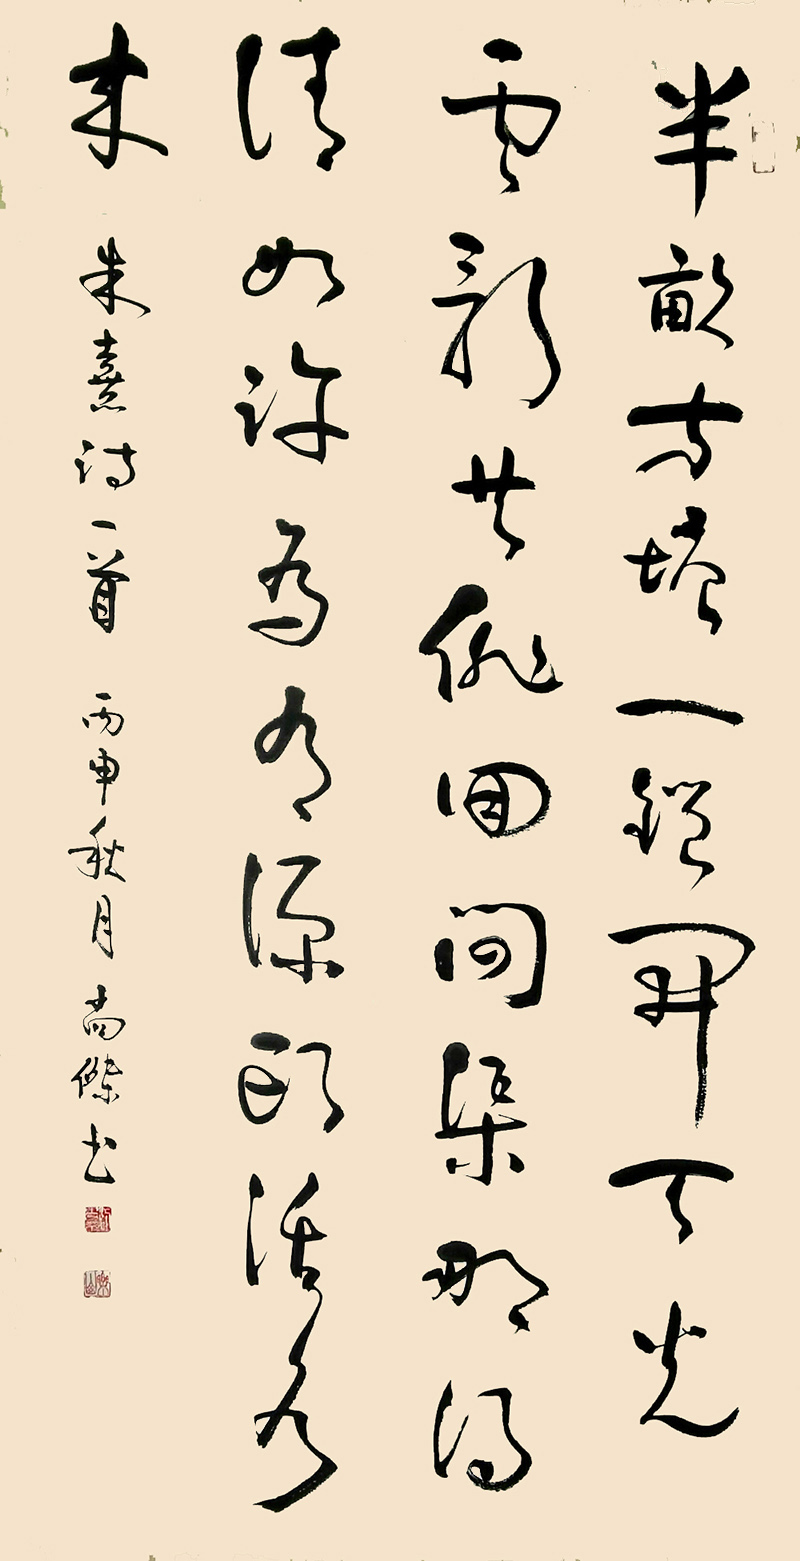 半畝方塘一鑑開天光
雲影共徘徊問渠那得
清如許為有源頭活水
來 朱熹詩一首 丙申秋月 尚傑書